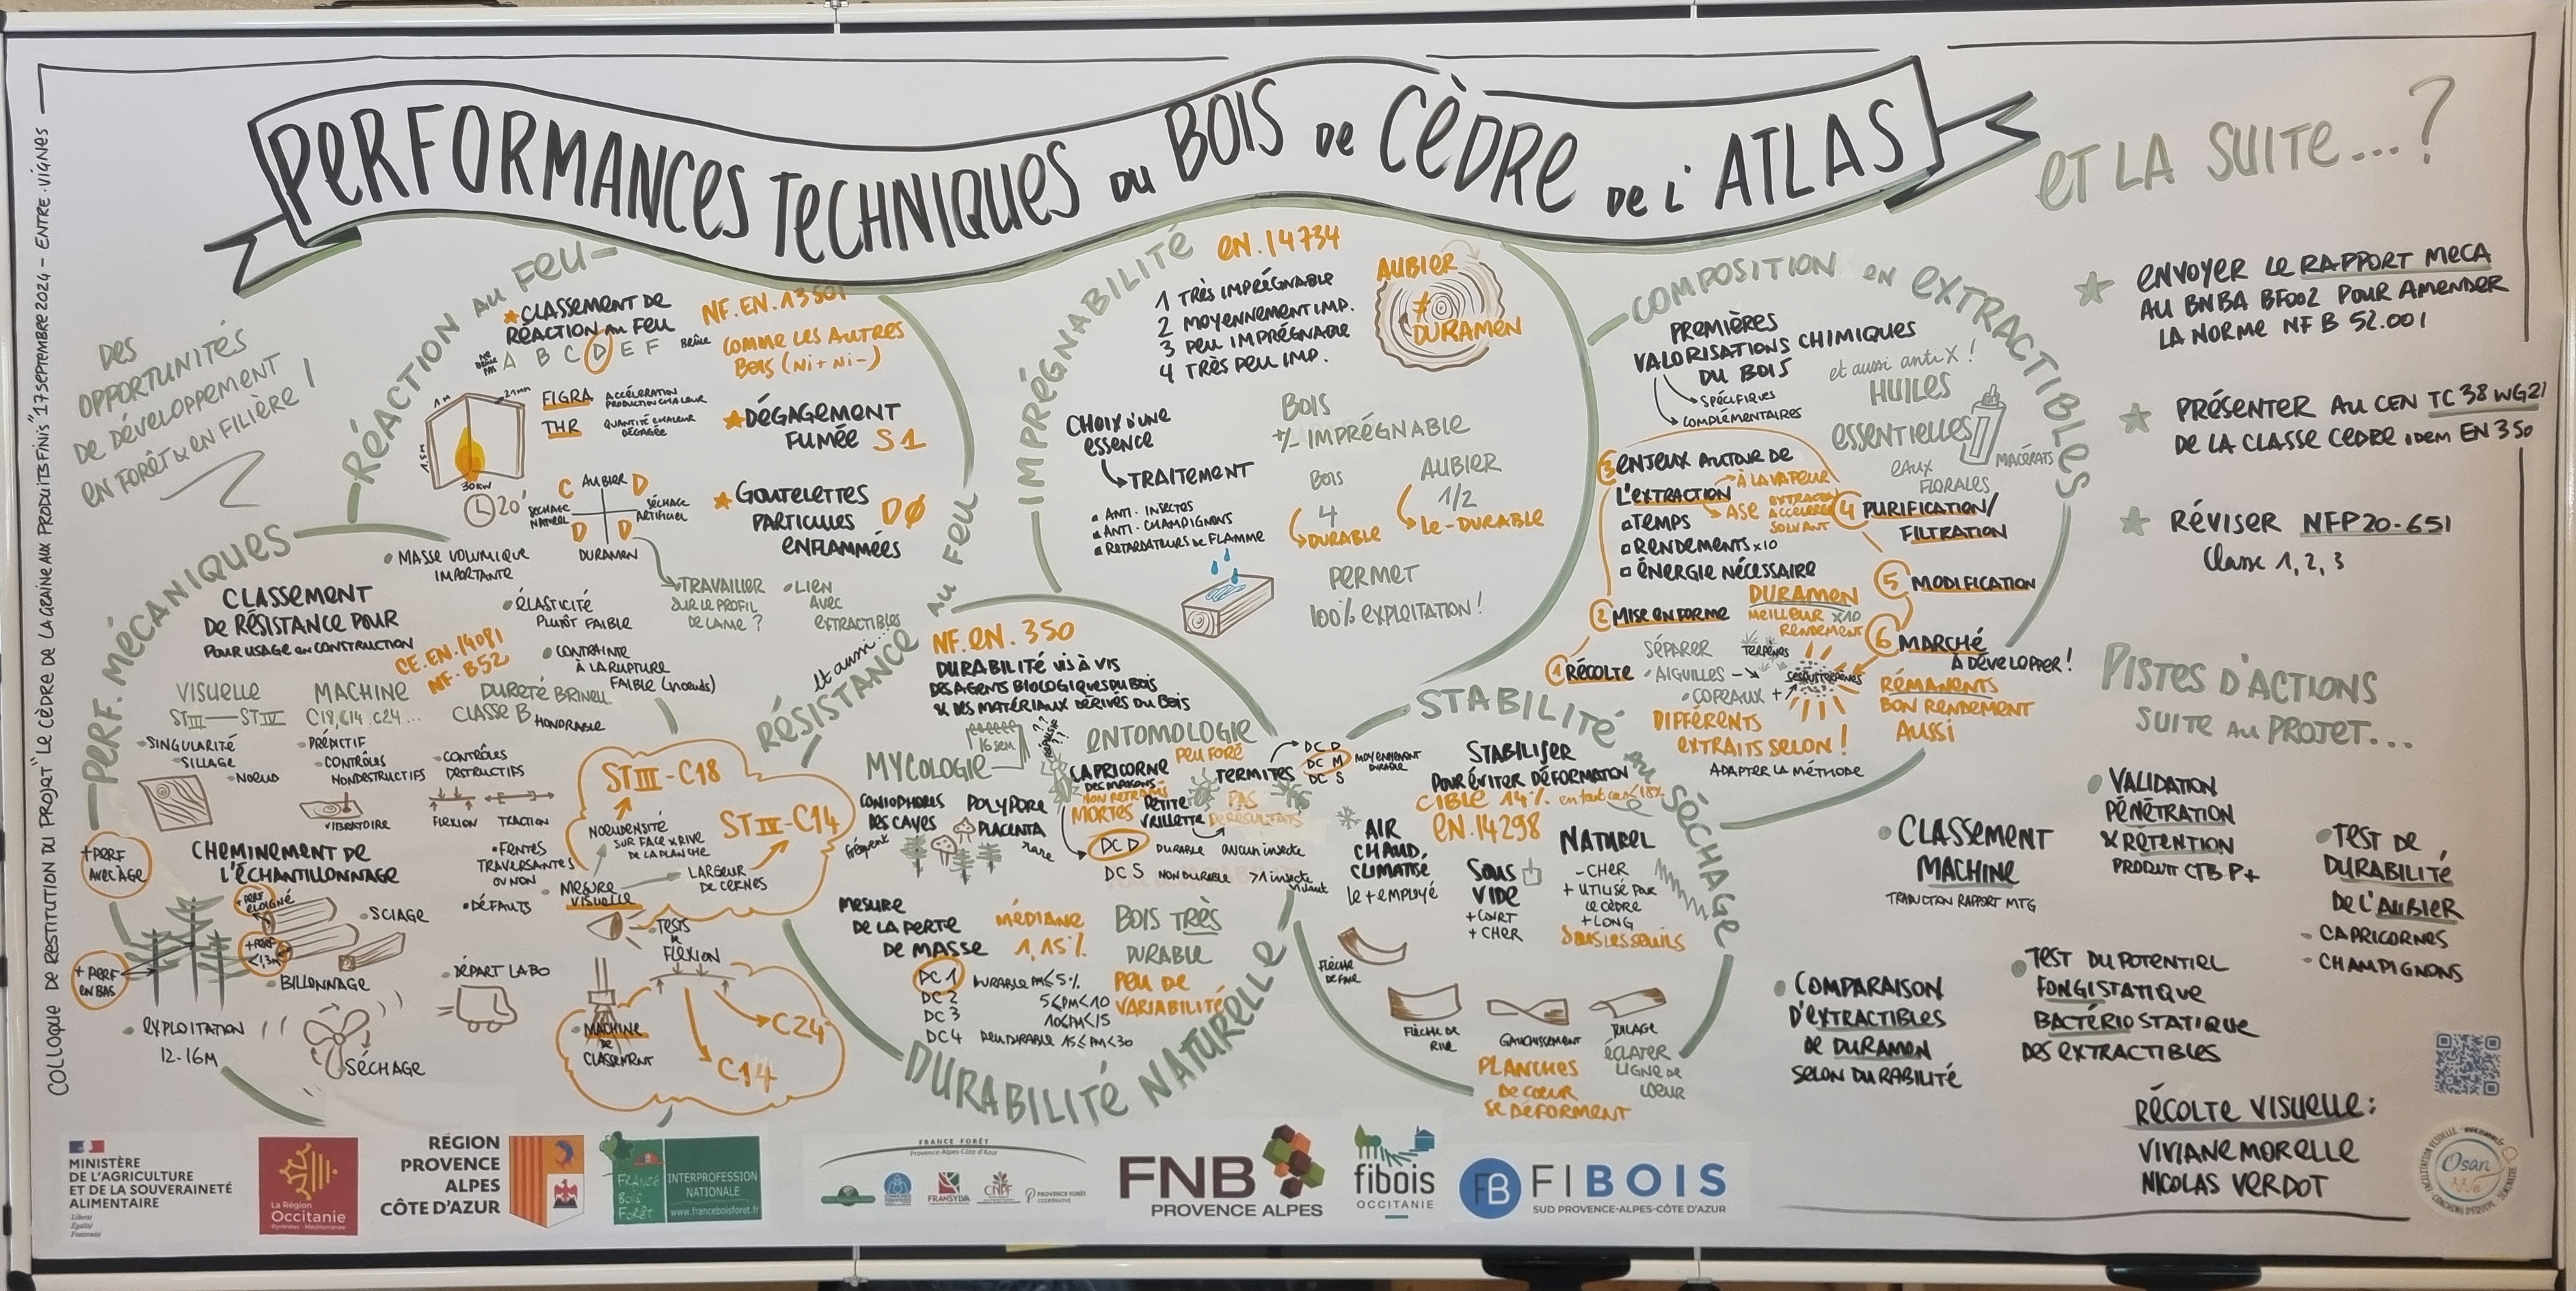 PERFORMANCES TECHNIQUES DU BOIS DE CÈDRE DE L'ATLAS
COLLOQUE DE RESTITUTION DU PROJET "LE CÈDRE DE LA GRAINE AUX PRODUITS FINIS" 17 SEPTEMBRE 2024 - ENTRE-VIGNES
DES
OPPORTUNITÉS
DE DÉVELOPPEMENT
EN FORÊT & EN FILIÈRE !
RÉACTION AU FEU
*CLASSEMENT DE
RÉACTION AU FEU
NF.EN.13501
NE BRÛLE PAS A B C D E F BRÛLE
COMME LES AUTRES
BOIS (Ni + Ni -)
1M
21mm
1.5M
30KW
20'
FIGRA ACCÉLÉRATION
PRODUCTION CHALEUR
THR QUANTITÉ CHALEUR
DÉGAGÉE
*DÉGAGEMENT
FUMÉE S1
C AUBIER D
SÉCHAGE
NATUREL
SÉCHAGE
ARTIFICIEL
D D
DURAMEN
*GOUTELETTES
PARTICULES DØ
ENFLAMMÉES
TRAVAILLER
SUR LE PROFIL
DE LAME ?
LIEN
AVEC
EXTRACTIBLES
PERF. MÉCANIQUES
CLASSEMENT
DE RÉSISTANCE POUR
POUR USAGE EN CONSTRUCTION
CE.EN.14081
NF-B52
MASSE VOLUMIQUE
IMPORTANTE
ÉLASTICITÉ
PLUTÔT FAIBLE
CONTRAINTE
À LA RUPTURE
FAIBLE (nœuds)
DURETÉ BRINELL
CLASSE B HONORABLE
VISUELLE
STIII — STIV
SINGULARITÉ
SILLAGE
NOEUD
MACHINE
C18, C14, C24...
PRÉDICTIF
CONTRÔLES
NONDESTRUCTIFS
VIBRATOIRE
CONTRÔLES
DESTRUCTIFS
FLEXION TRACTION
STIII - C18
STIV - C14
NOEUDENSITÉ
SUR FACE & RIVE
DE LA PLANCHE
LARGEUR
DE CERNES
FENTES
TRAVERSANTES
OU NON
DÉFAUTS
MESURE
VISUELLE
+PERF
AVEC ÂGE
CHEMINEMENT DE
L'ÉCHANTILLONNAGE
+PERF
ÉLOIGNÉ
+PERF
<1,3M
+PERF
EN BAS
SCIAGE
BILLONNAGE
EXPLOITATION
12-16M
SÉCHAGE
DÉPART LABO
TESTS
DE
FLEXION
MACHINE
DE
CLASSEMENT
C24
C14
RÉSISTANCE AU FEU
et aussi...
IMPRÉGNABILITÉ
EN.14734
1 TRÈS IMPRÉGNABLE
2 MOYENNEMENT IMP.
3 PEU IMPRÉGNABLE
4 TRÈS PEU IMP.
AUBIER
≠
DURAMEN
CHOIX D'UNE
ESSENCE
TRAITEMENT
ANTI-INSECTES
ANTI-CHAMPIGNONS
RETARDATEURS DE FLAMME
BOIS
+/- IMPRÉGNABLE
BOIS
4
DURABLE
AUBIER
1/2
LE-DURABLE
PERMET
100% EXPLOITATION !
NF.EN.350
DURABILITÉ VIS À VIS
DES AGENTS BIOLOGIQUES DU BOIS
& DES MATÉRIAUX DÉRIVÉS DU BOIS
16 sem
MYCOLOGIE
CONIOPHORES
DES CAVES
fréquent
POLYPORE
PLACENTA
rare
ENTOMOLOGIE
PEU FORÉ
CAPRICORNE
DES MAISONS
NON RETROUVÉS
MORTES
PETITE
VRILLETTE
PAS
DE RÉSULTATS
TERMITES
DC D
DC M MOYENNEMENT
DURABLE
DC S
DC D DURABLE aucun insecte
DC S NON DURABLE >1 insecte
vivant
MESURE
DE LA PERTE
DE MASSE
MÉDIANE
1,15%
BOIS TRÈS
DURABLE
PEU DE
VARIABILITÉ
DC1 DURABLE PM≤5%
DC2 5<PM<10
DC3 10<PM<15
DC4 PEU DURABLE 15≤PM<30
DURABILITÉ NATURELLE
STABILITÉ AU SÉCHAGE
STABILISER
POUR ÉVITER DÉFORMATION
CIBLE 14% en tout cas <18%
EN.14298
AIR
CHAUD
CLIMATISÉ
le + employé
SOUS
VIDE
+COURT
+CHER
NATUREL
-CHER
+ UTILISÉ PAR
LE CÈDRE
+LONG
SOUS LES SEUILS
FLÈCHE
DE FACE
FLÈCHE DE
RIVE
GAUCHISSEMENT
TUILAGE
PLANCHES
DE CŒUR
SE DÉFORMENT
ÉCLATER
LIGNE DE
CŒUR
COMPOSITION EN EXTRACTIBLES
PREMIÈRES
VALORISATIONS CHIMIQUES
DU BOIS
SPÉCIFIQUES
COMPLÉMENTAIRES
et aussi anti X !
HUILES
ESSENTIELLES
EAUX
FLORALES
MACÉRATS
3 ENJEUX AUTOUR DE
L'EXTRACTION
À LA VAPEUR
ASE EXTRACTION
ACCÉLÉRÉE
SOLVANT
TEMPS
RENDEMENTS x10
ÉNERGIE NÉCESSAIRE
4 PURIFICATION/
FILTRATION
5 MODIFICATION
6 MARCHÉ
À DÉVELOPPER !
2 MISE EN FORME
DURAMEN
MEILLEUR x10
RENDEMENT
1 RÉCOLTE
SÉPARER
AIGUILLES
COPEAUX +
TERPÈNES
SESQUITERPÈNES
DIFFÉRENTS
EXTRAITS SELON !
ADAPTER LA MÉTHODE
RÉMANENTS
BON RENDEMENT
AUSSI
ET LA SUITE...?
ENVOYER LE RAPPORT MECA
AU BNBA BF002 POUR AMENDER
LA NORME NF B 52.001
PRÉSENTER AU CEN TC 38 WG21
DE LA CLASSE CÈDRE IDEM EN 350
RÉVISER NFP20-651
Classe 1, 2, 3
PISTES D'ACTIONS
SUITE AU PROJET...
CLASSEMENT
MACHINE
TRADUCTION RAPPORT MTG
VALIDATION
PÉNÉTRATION
& RÉTENTION
PRODUIT CTB P+
TEST DE
DURABILITÉ
DE L'AUBIER
- CAPRICORNES
- CHAMPIGNONS
COMPARAISON
D'EXTRACTIBLES
DE DURAMEN
SELON DURABILITÉ
TEST DU POTENTIEL
FONGISTATIQUE
BACTÉRIOSTATIQUE
DES EXTRACTIBLES
RÉCOLTE VISUELLE :
VIVIANE MORELLE
NICOLAS VERDOT
Osan
MINISTÈRE
DE L'AGRICULTURE
ET DE LA SOUVERAINETÉ
ALIMENTAIRE
Liberté
Égalité
Fraternité
La Région
Occitanie
Pyrénées - Méditerranée
RÉGION
PROVENCE
ALPES
CÔTE D'AZUR
FRANCE
BOIS
FORÊT
INTERPROFESSION
NATIONALE
www.franceboisforet.fr
FRANCE FORÊT
Provence-Alpes-Côte d'Azur
FRANSYLVA
CNPF
PROVENCE FORÊT
COOPÉRATIVE
FNB
PROVENCE ALPES
fibois
OCCITANIE
FB FIBOIS
SUD PROVENCE-ALPES-CÔTE D'AZUR